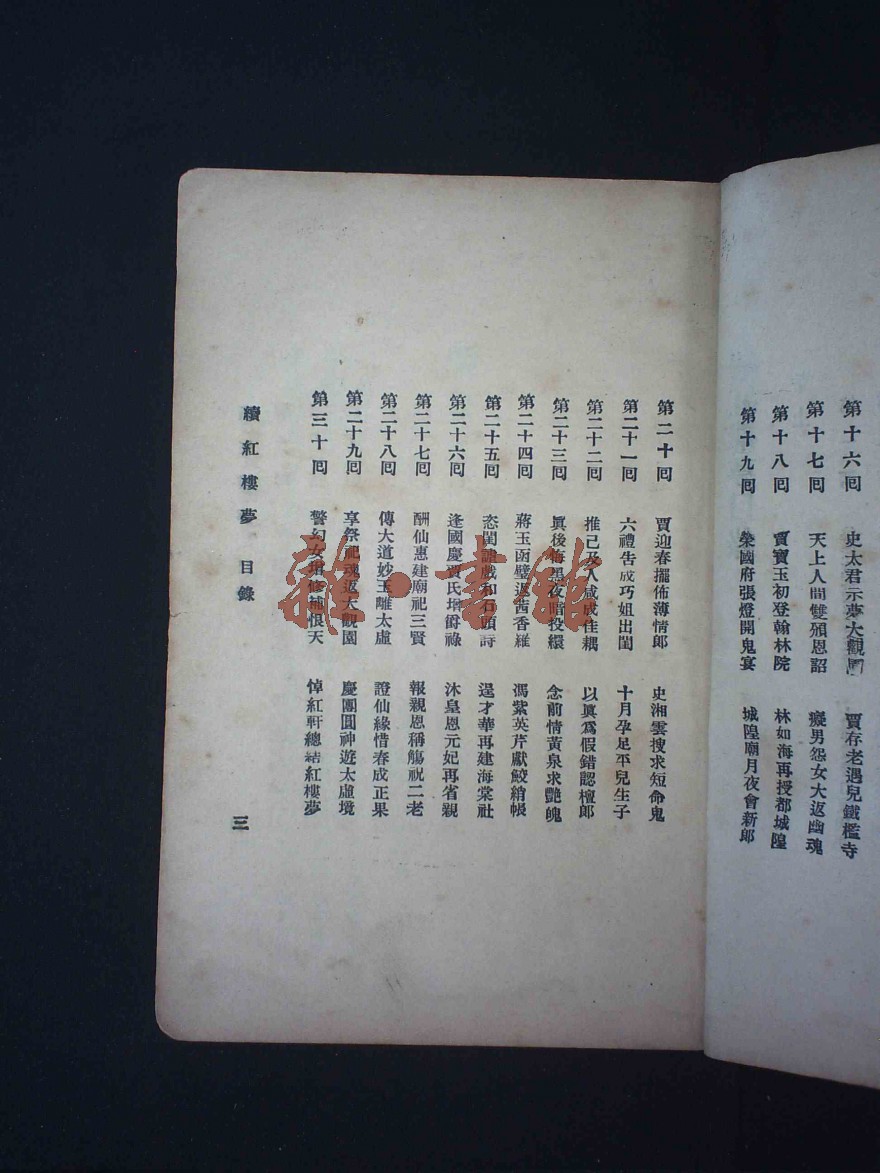 第十六回 史太君示夢大觀園 賈存老遇兒鐵檻寺
第十七回 天上人間雙頒恩詔 癡男怨女大返幽魂
第十八回 賈寶玉初登翰林院 林如海再授都城隍
第十九回 榮國府張燈開鬼宴 城隍廟月夜會新郎
第二十回 賈迎春擺佈薄情郎 史湘雲搜求短命鬼
第二十一回 六禮吿成巧姐出閨 十月孕足平兒生子
第二十二回 推己及人咸成佳耦 以眞爲假錯認檀郎
第二十三回 眞後悔黑夜暗投繯 念前情黃泉求艷魄
第二十四回 蔣玉函璧返茜香羅 馮紫英芹獻鮫綃帳
第二十五回 恣閨謔戲和石頭詩 逞才華再建海棠社
第二十六回 逢國慶賈氏增爵祿 沐皇恩元妃再省親
第二十七回 酬仙惠建廟祀三賢 報親恩稱觴祝二老
第二十八回 傳大道妙玉離太虛 證仙緣惜春成正果
第二十九回 享祭祀魂返大觀園 慶團圓神遊太虛境
第三十回 警幻女媧修補恨天 悼紅軒總結紅樓夢
續紅樓夢 目錄
三
雜·書館